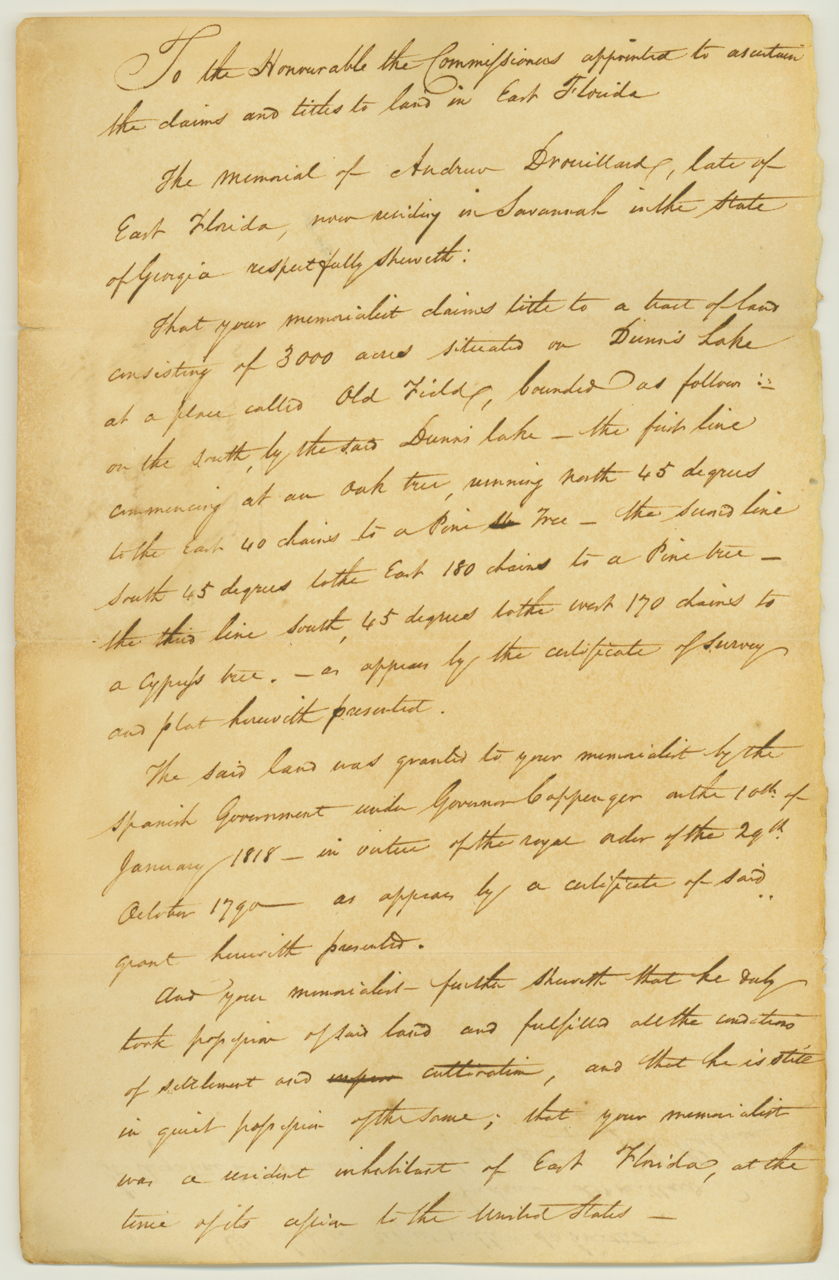 To the Honourable the Commissioners appointed to ascertain
the claims and titles to land in East Florida
The memorial of Andrew Drouillard, late of
East Florida, now residing in Savannah in the State
of Georgia respectfully sheweth:
That your memorialist claims title to a tract of land
consisting of 3000 acres situated on Dunn's Lake
at a place called Old Field, bounded as follows:
on the South, by the said Dunn's lake — the first line
commencing at an Oak tree, running North 45 degrees
to the East 40 chains to a Pine Tree — the second line
South 45 degrees to the East 180 chains to a Pine tree —
the third line South, 45 degrees to the west 170 chains to
a Cypress tree. — as appears by the certificate of survey
and plat herewith presented.
The said land was granted to your memorialist by the
Spanish Government under Governor Coppenger on the 10th of
January 1818 — in virtue of the royal order of the 29th
October 1790 — as appears by a certificate of said
grant herewith presented.
And your memorialist further sheweth that he duly
took possession of said land and fulfilled all the conditions
of settlement and cultivation, and that he is still
in quiet possession of the same; that your memorialist
was a resident inhabitant of East Florida, at the
time of its cession to the United States —